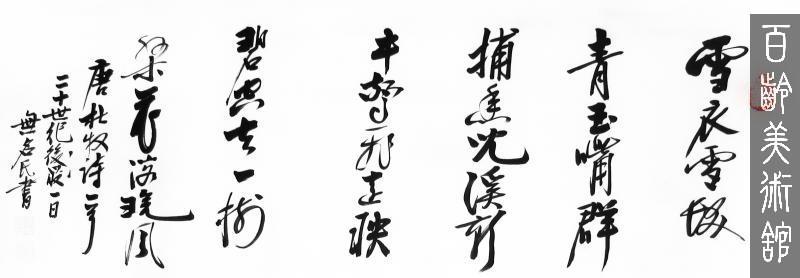 百齡美術舘
雪衣雪髮
青玉嘴群
捕魚児溪影
中驚飛遠映
碧山去一樹
梨花落晚風
唐杜牧诗一
二十世纪後最一日
無名氏書